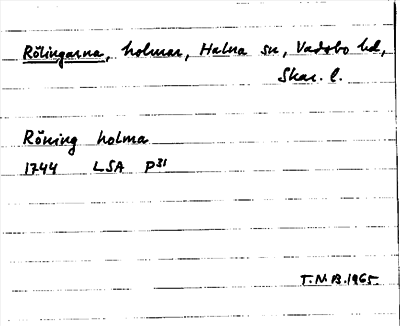 Rölingarna, holmar, Halna sn, Vadsbo hd,
Skar. l.
Röning holma
1744 LSA P31
T.N.B. 1965.